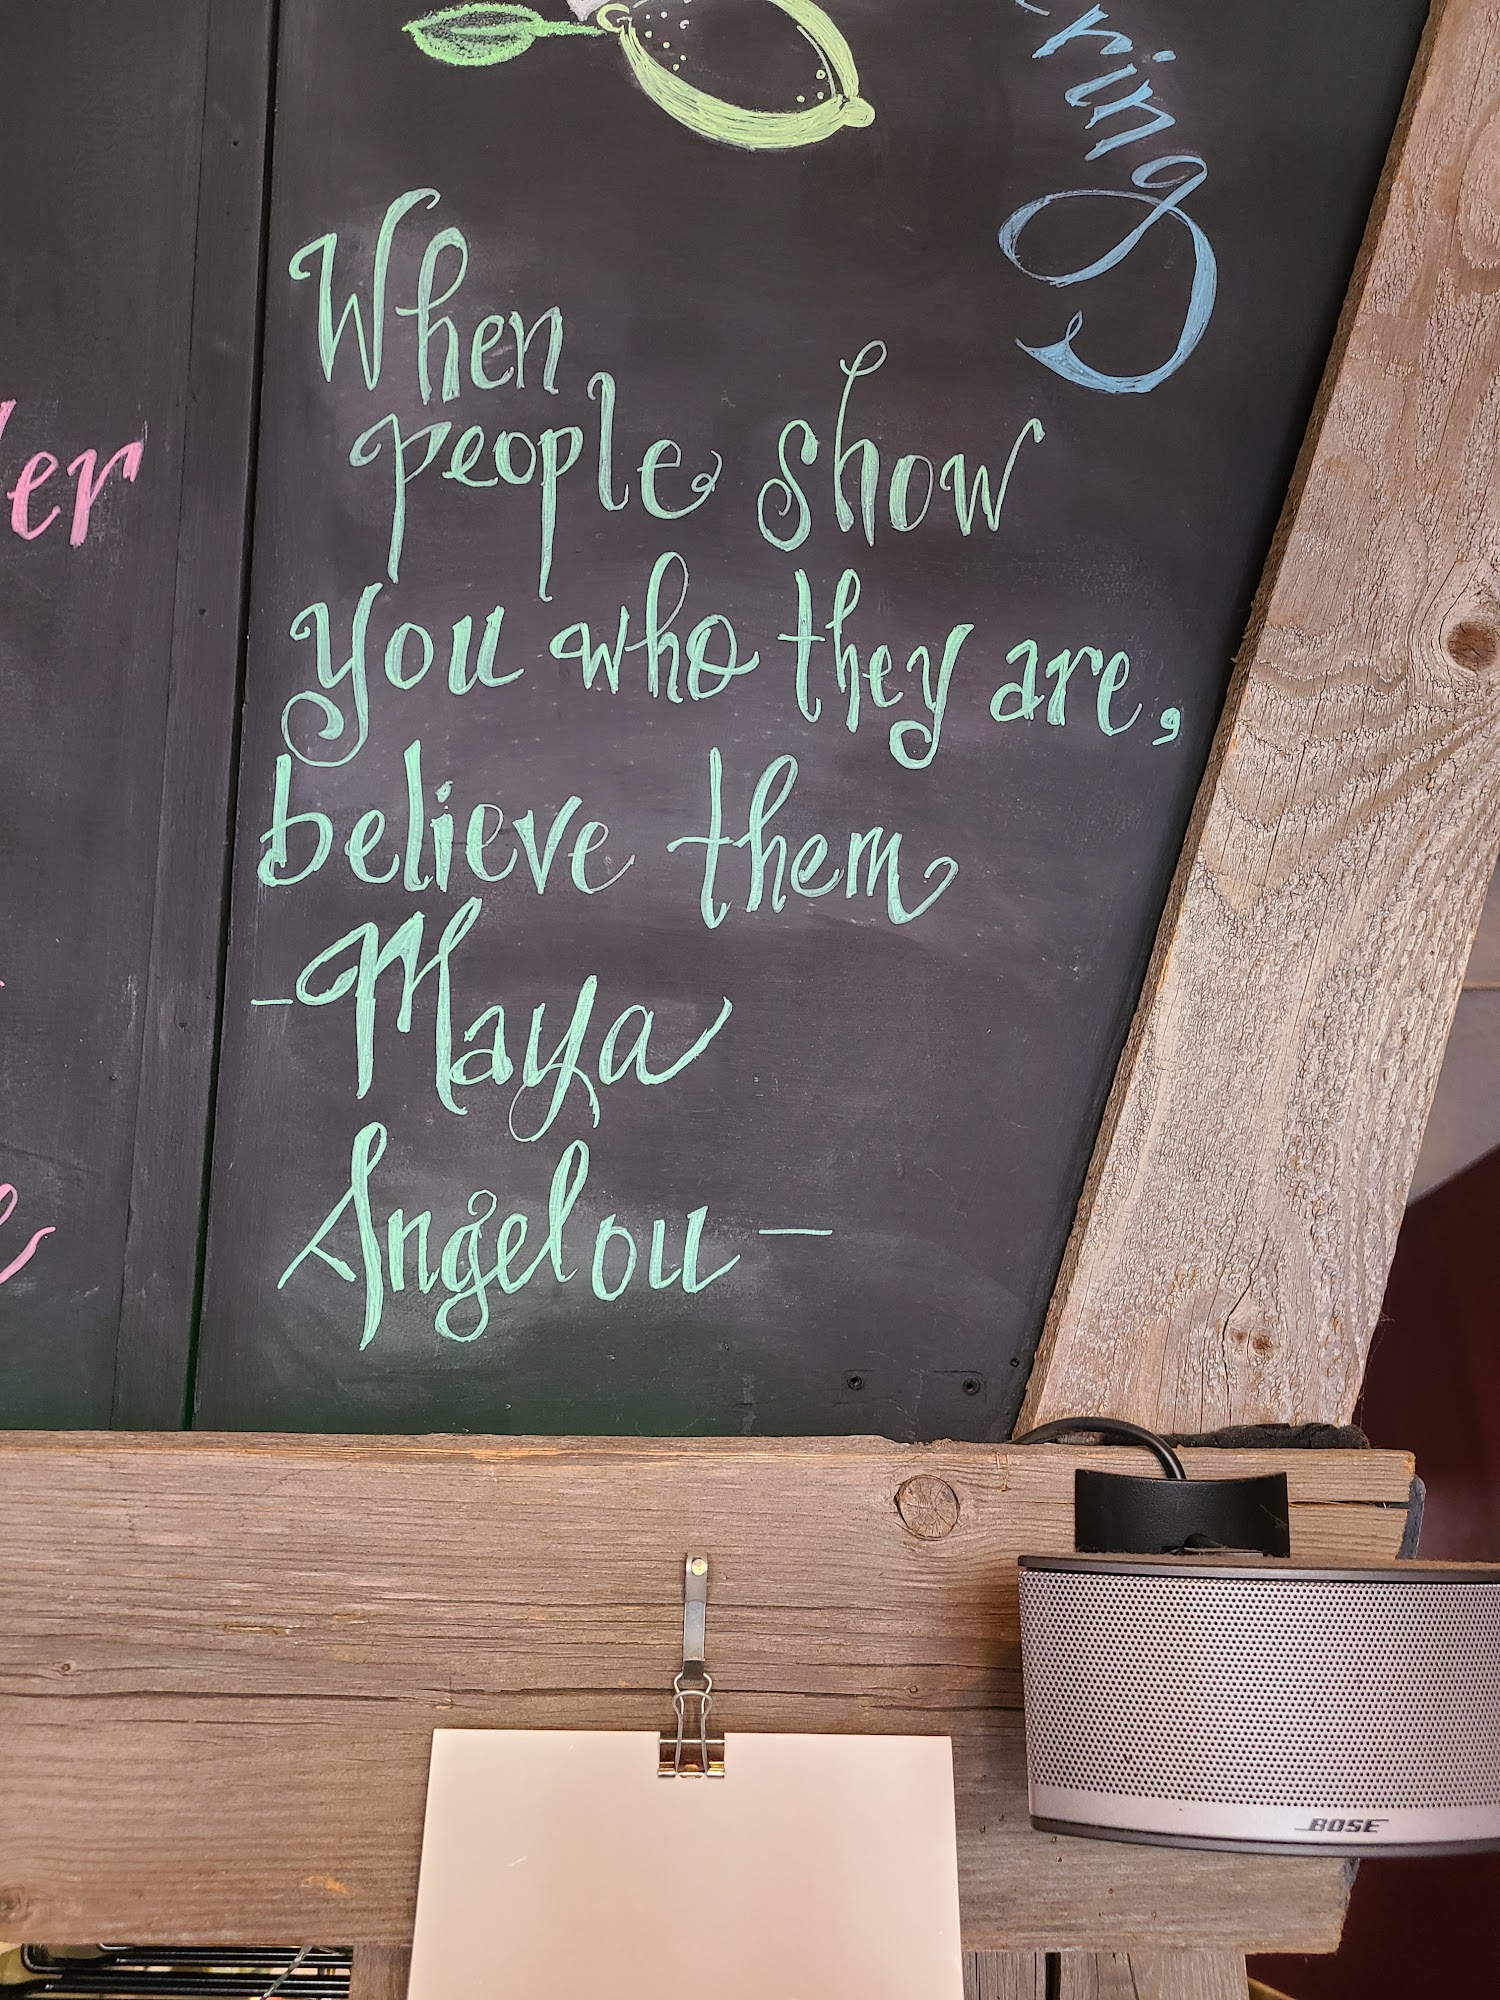 ring
When
people show
you who they are,
believe them
-Maya
Angelou-
er
BOSE